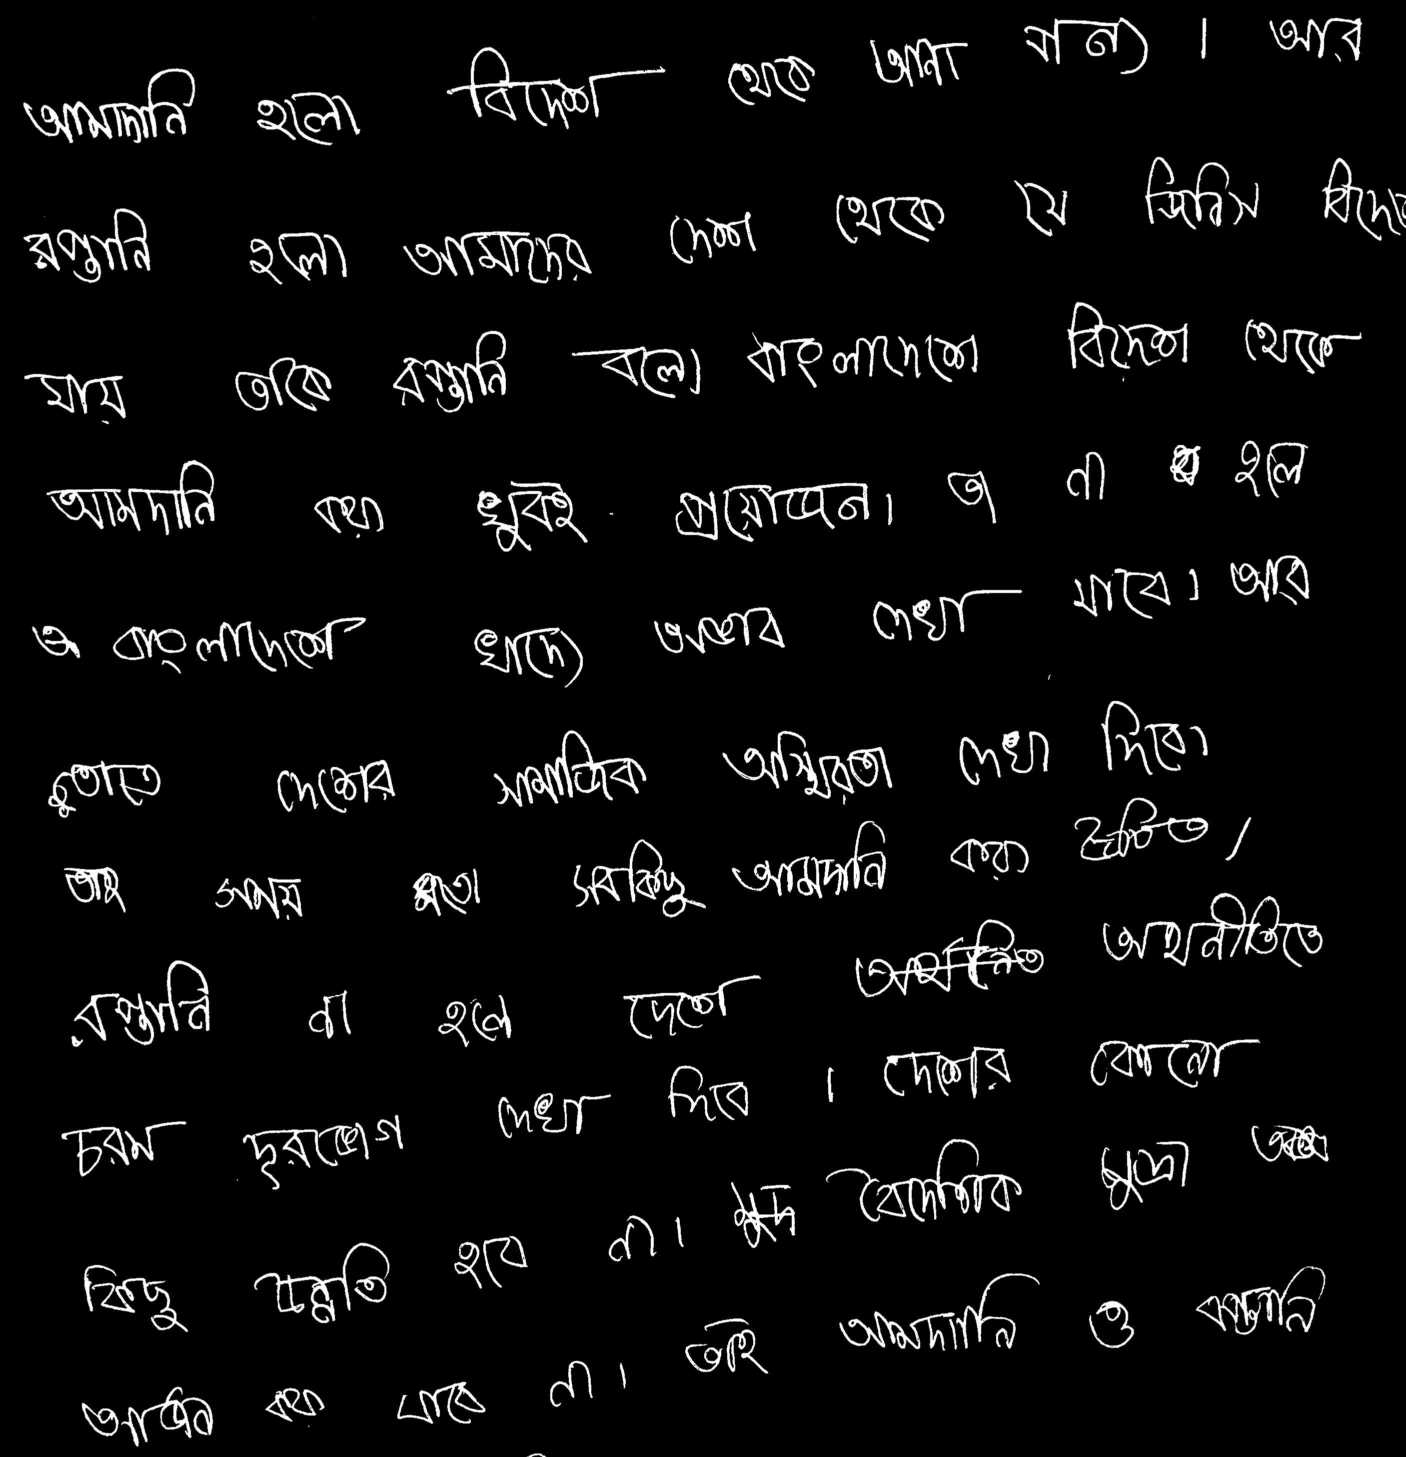 আমদানি হলো বিদেশ থেকে আনা পান্য । আর
রপ্তানি হলো আমাদের দেশ থেকে যে জিনিস বিদেশে
যায় তাকে রপ্তানি বলে। বাংলাদেশে বিদেশ থেকে
আমদানি করা খুবই প্রয়োজন। তা না হলে
বাংলাদেশে খাদ্যে অভাব দেখা যাবে। আর
দেশের সামাজিক অস্থিরতা দেখা দিবে।
তাই সময় মতো সবকিছু আমদানি করা উচিত।
রপ্তানি না হলে দেশে অথনীতিতে
চরম দূরভোগ দেখা দিবে । দেশের কোনো
কিছু উন্নতি হবে না। বৈদেশিক মুদ্রা
আর্জন করা যাবে না। তাই আমদানি ও রপ্তানি